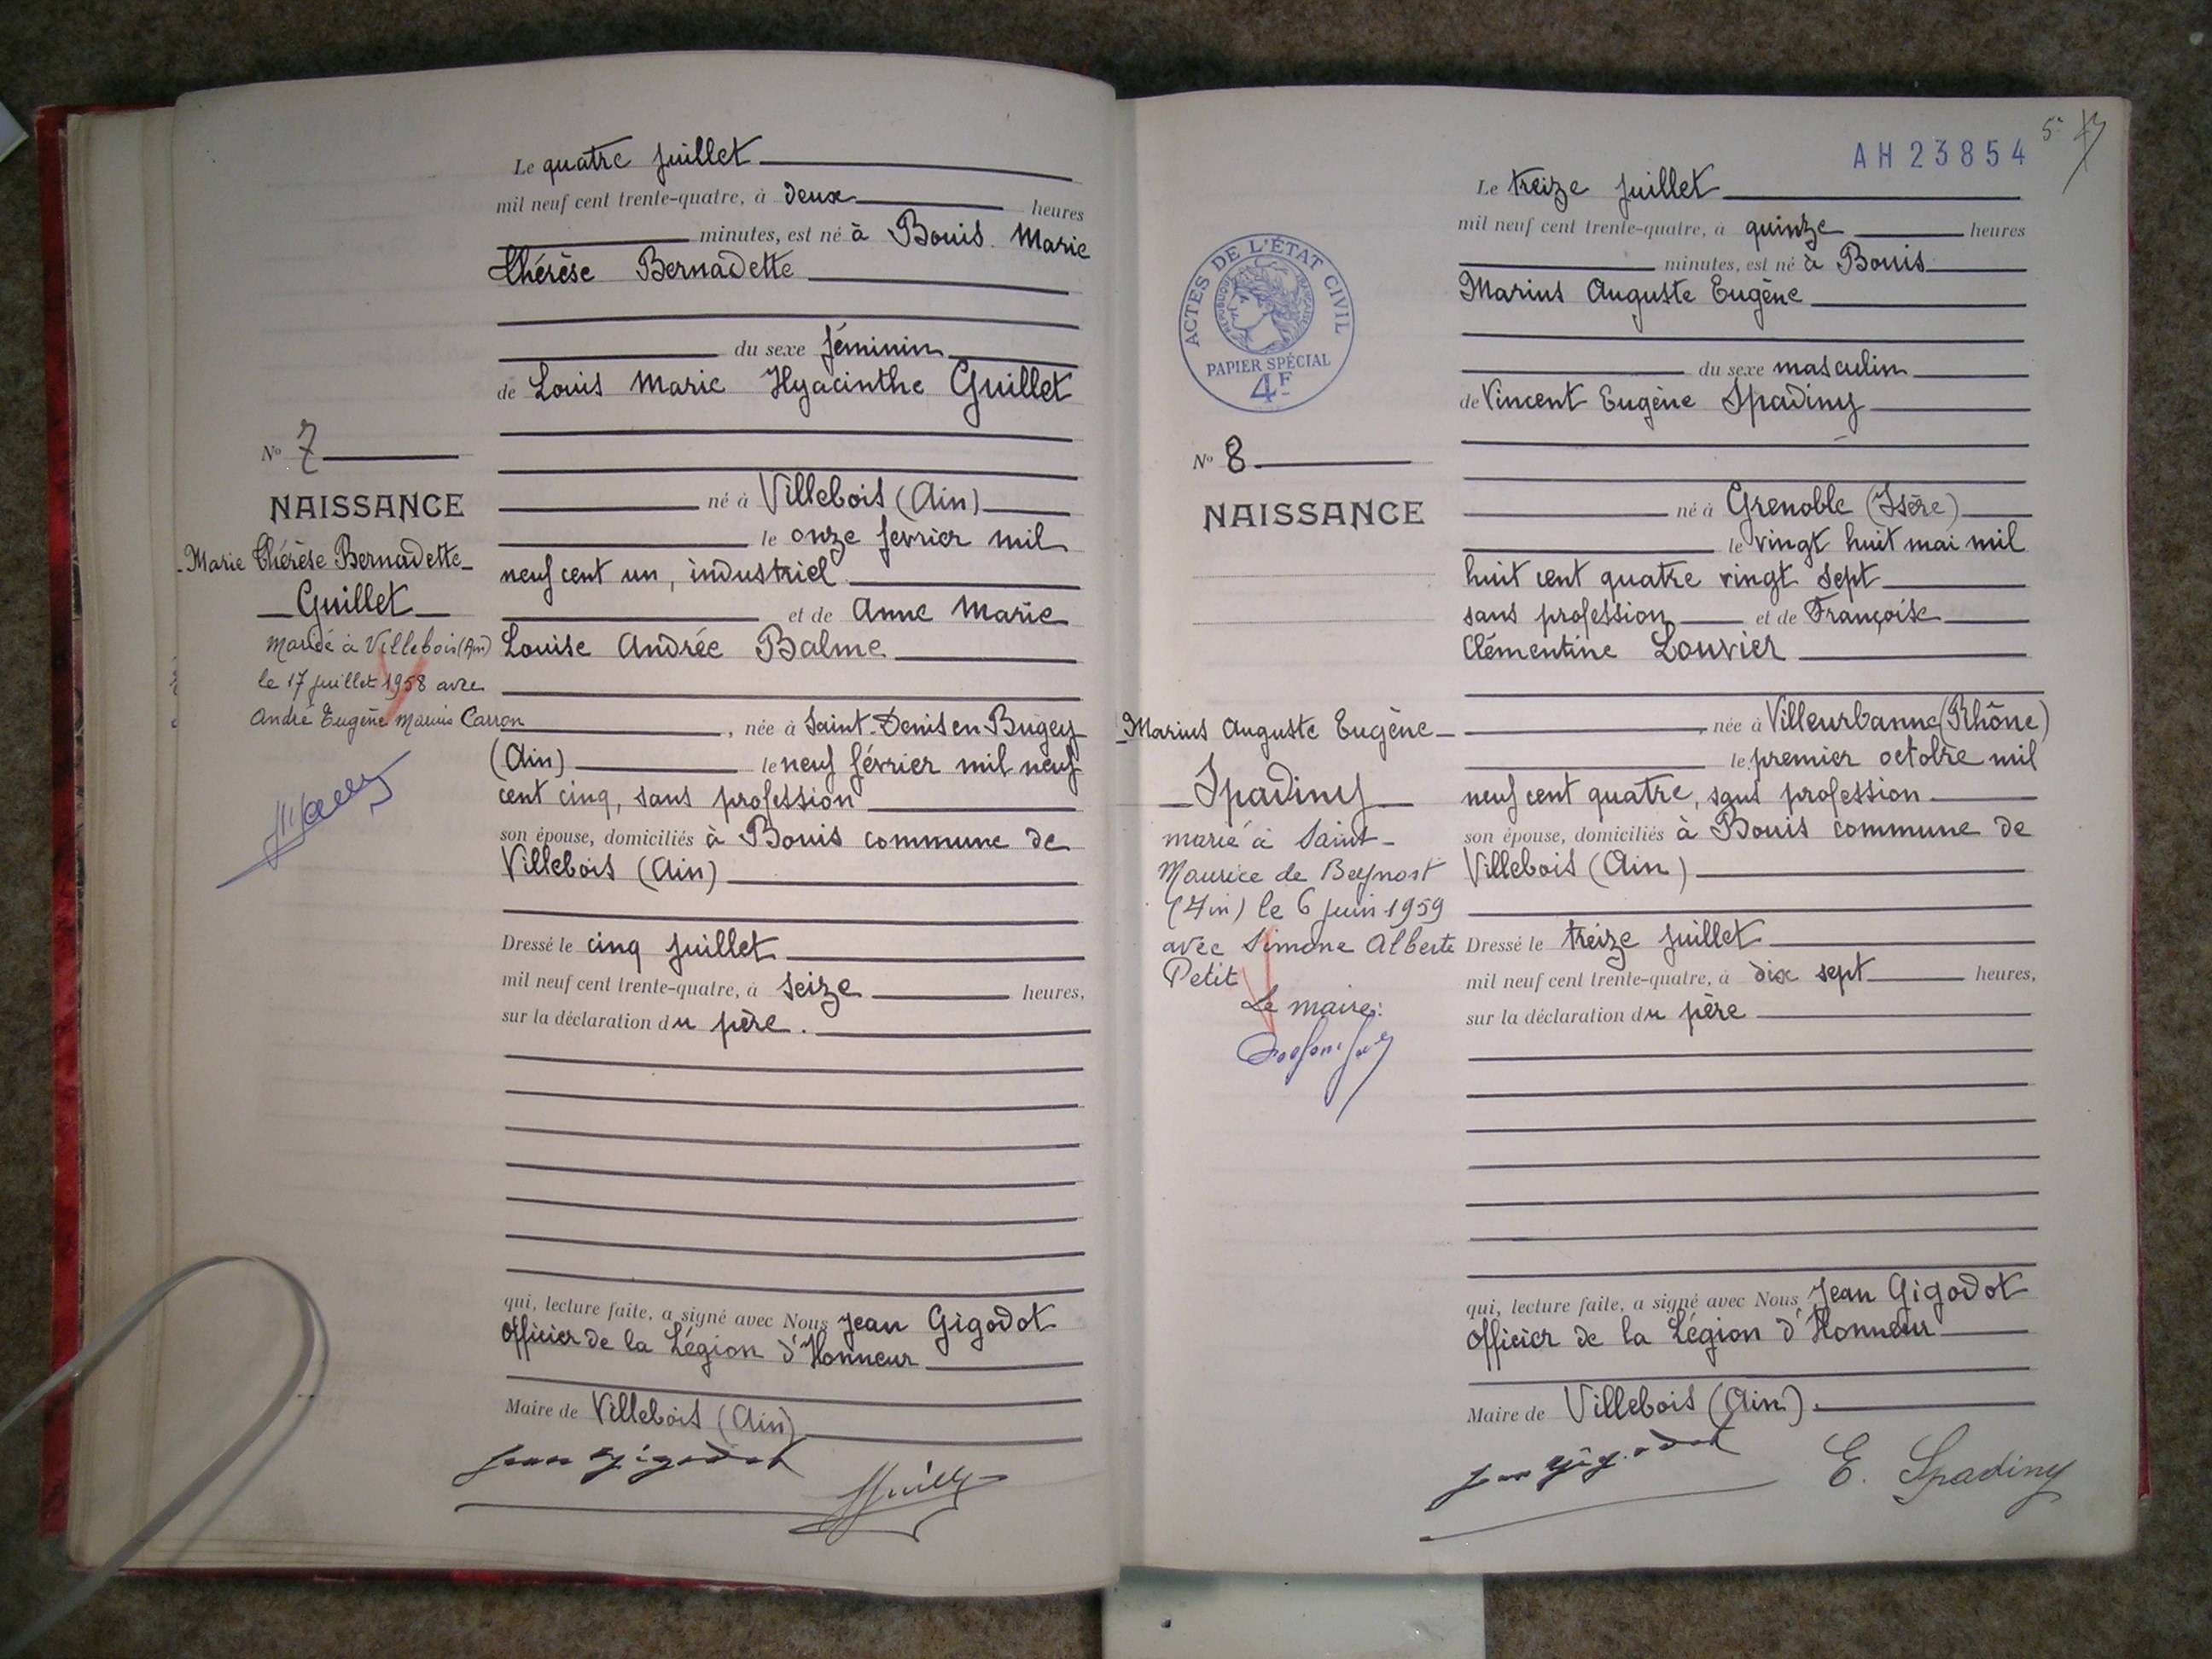 Le quatre juillet
mil neuf cent trente-quatre, à deux heures
minutes, est né à Bouis Marie
Thérèse Bernadette
du sexe féminin
de Louis Marie Hyacinthe Guillet
né à Villebois (Ain)
le onze fevrier mil
neuf cent un, industriel
et de Anne Marie
Louise Andrée Balme
, née à Saint-Denis en Bugey
(Ain) le neuf février mil neuf
cent cinq, sans profession
son épouse, domiciliés à Bouis commune de
Villebois (Ain)
Dressé le cinq juillet
mil neuf cent trente-quatre, à seize heures,
sur la déclaration du père.
qui, lecture faite, a signé avec Nous Jean Gigodot
officier de la Légion d'Honneur
Maire de Villebois (Ain)
Jean Gigodot
No 7
NAISSANCE
Marie Thérèse Bernadette
Guillet
Mariée à Villebois (Ain)
le 17 juillet 1958 avec
André Eugène Marius Carron
5e
AH 23854
Le treize juillet
mil neuf cent trente-quatre, à quinze heures
minutes, est né à Bouis
Marius Auguste Eugène
du sexe masculin
de Vincent Eugène Spadiny
né à Grenoble (Isère)
le vingt huit mai mil
huit cent quatre vingt sept
sans profession et de Françoise
Clémentine Louvier
, née à Villeurbanne (Rhône)
le premier octobre mil
neuf cent quatre, sans profession
son épouse, domiciliés à Bouis commune de
Villebois (Ain)
Dressé le treize juillet
mil neuf cent trente-quatre, à dix sept heures,
sur la déclaration du père
qui, lecture faite, a signé avec Nous Jean Gigodot
officier de la Légion d'Honneur
Maire de Villebois (Ain).
Jean Gigodot
E. Spadiny
ACTES DE L'ÉTAT CIVIL
RÉPUBLIQUE FRANÇAISE
PAPIER SPÉCIAL
4F
No 8
NAISSANCE
Marius Auguste Eugène
Spadiny
marié à Saint-
Maurice de Beynost
(Ain) le 6 juin 1959
avec Simone Alberte
Petit
Le maire: